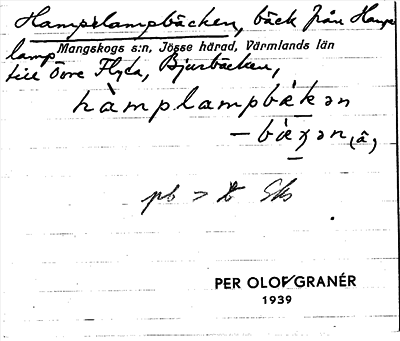 Hampelampbäcken, bäck från Hampe
lamp Mangskogs s:n, Jösse härad, Värmlands län
till Övre Flyta, Bjurbäcken,
hàmplampbækən
– bæʒən (â)
pb > 
PER OLOF GRANÉR
1939